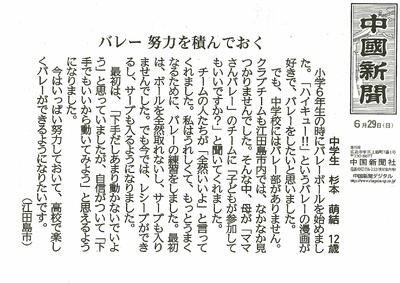 中國新聞
6月29日(日)
発行所
中国新聞社
中国新聞デジタル
バレー 努力を積んでおく
中学生 杉本 萌結 12歳
小学6年生の時にバレーボールを始めまし
た。「ハイキュー!!」というバレーの漫画が
好きで、バレーをしたいと思いました。
でも、中学校にはバレー部がありません。
クラブチームも江田島市内では、なかなか見
つかりませんでした。そんな中、母が「ママ
さんバレー」のチームに「子どもが参加して
もいいですか?」と聞いてくれました。
チームの人たちが「全然いいよ」と言って
くれました。私はうれしくて、もっとうまく
なるために、バレーの練習をしました。最初
は、ボールを全然取れないし、サーブも入り
ませんでした。でも今では、レシーブができ
るし、サーブも入るようになりました。
最初は、「下手だしあまり動かないでいよ
う」と思っていましたが、自信がついて「下
手でもいいから動いてみよう」と思えるよう
になりました。
今はいっぱい努力しておいて、高校で楽し
くバレーができるようになりたいです。
(江田島市)